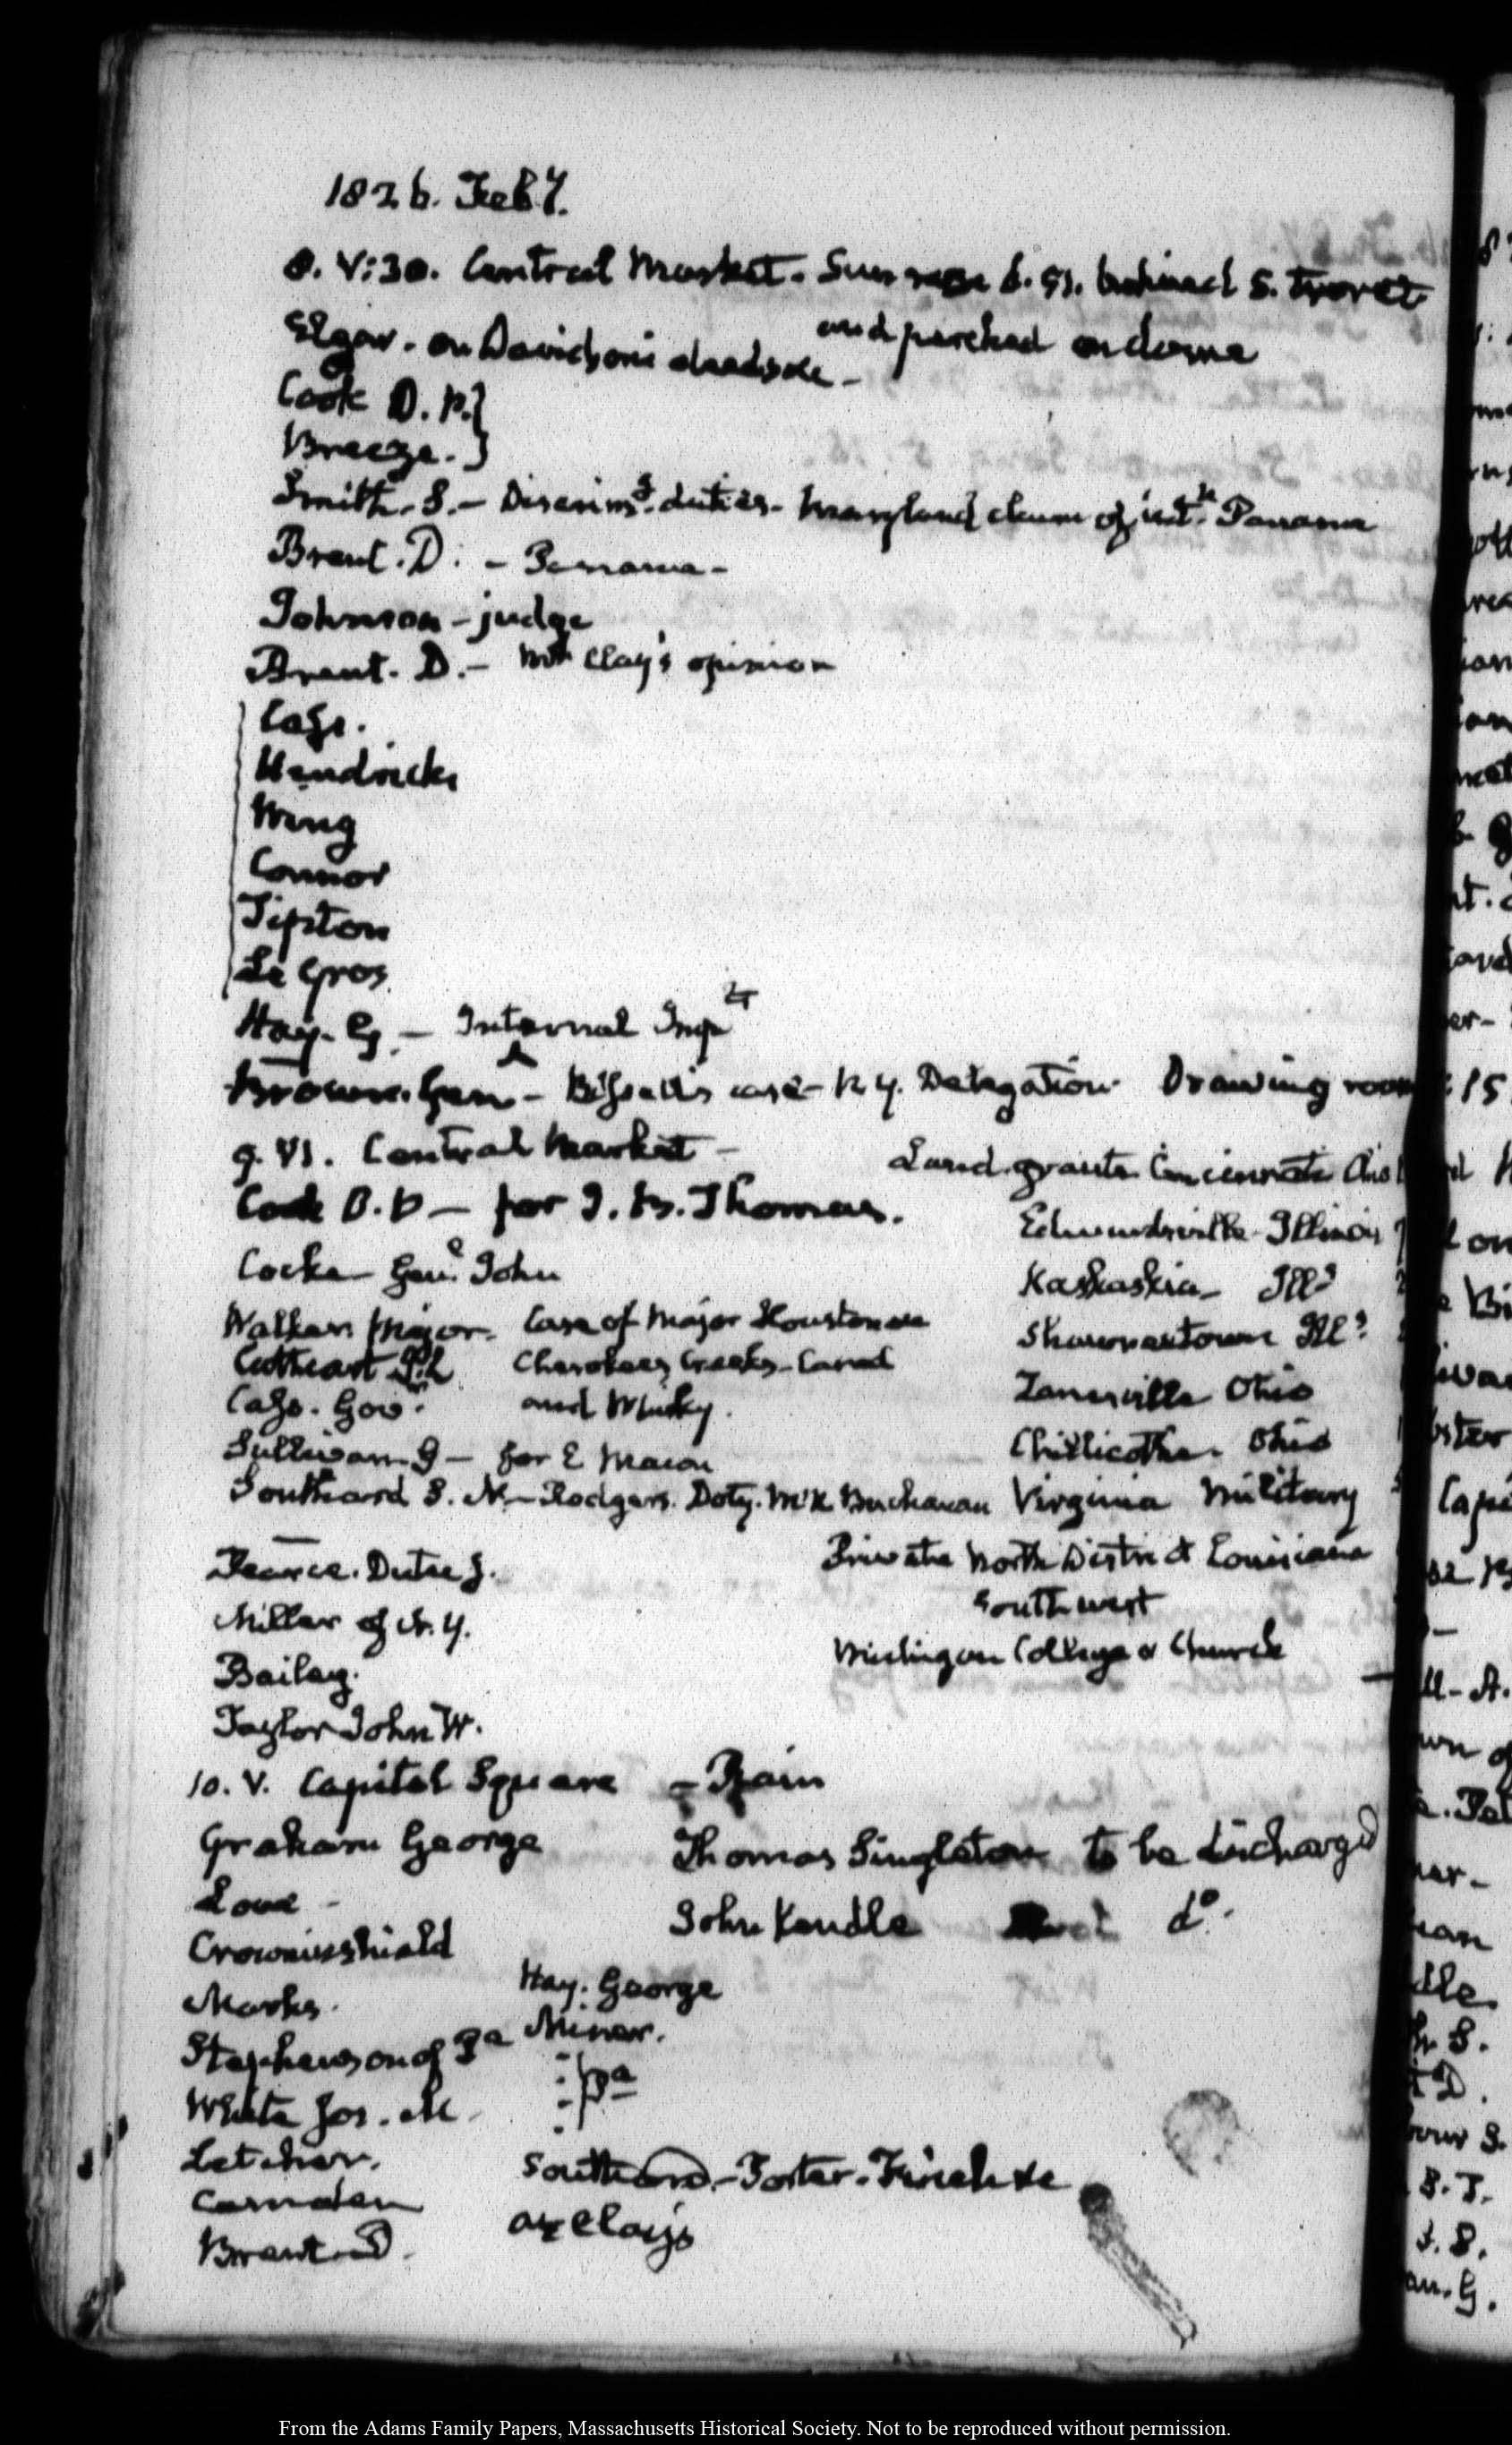 1826. Feby.
8. V:30. Central Market. Sun rose 6.51. behind S. turret
and perched on dome
Elgar. on Davidson's
Cook D. P.
Breeze.
Smith. S. — Discrimg. duties. Maryland claim of intt. Panama
Brent. D. — Panama —
Johnson — judge
Brent. D. — Mr Clay's opinion
Cass.
Hendricks
Wing
Connor
Tipton
Le Gros
Hay. G. — Internal Impt
Brown. Genl — Bissell's case — N. Y. Delegation Drawing room
9. VI. Central Market —
Land grants Cincinnati Ohio
Cook D. P — for J. B. Thomas.
Edwardsville Illinois
Cocke Genl. John
Kaskaskia — Ills
Walker Major. Case of Major Houston
Shawneetown Ills
Cathcart J. L Cherokees Creeks — Canal
Zanesville Ohio
Cass. Gov. and Whisky.
Chillicothe. Ohio
Sullivan. G — for E Macon
Southard S. L. — Rodgers. Doty. McK Buchanan
Virginia Military
Pearce. Dutee J.
Private North District Louisiana
South west
Miller of N. Y.
Michigan College & Church
Bailey.
Taylor John W.
10. V. Capitol Square — Rain
Graham George
Thomas Singleton to be discharged
Lowe —
John Kendle do.
Crowninshield
Hay. George
Marks.
Miner.
Stephenson of Pa
: Pa
White Jos. M.
Letcher.
Southard. — Foster. Finch &c
Carnden
at Clay's
Brent. D.